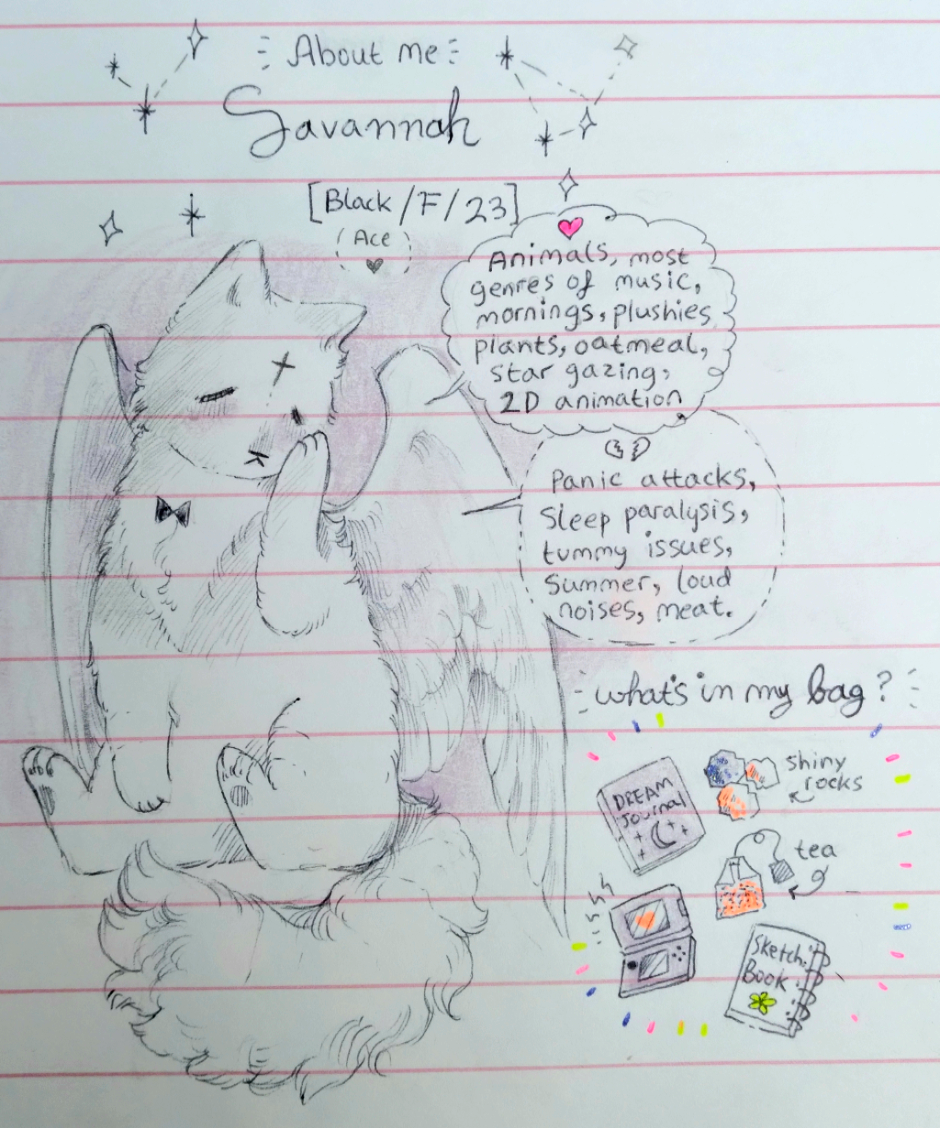 About me
Savannah
[Black/F/23]
(Ace)
Animals, most
genres of music,
mornings, plushies
plants, oatmeal,
star gazing,
2D animation
Panic attacks,
Sleep paralysis,
tummy issues,
Summer, loud
noises, meat.
what's in my bag?
DREAM
Journal
shiny
rocks
tea
Sketch
Book